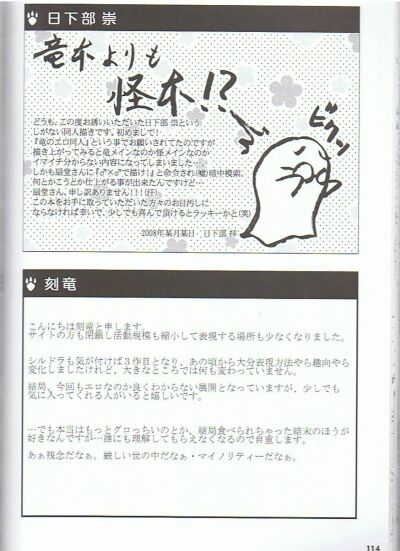 日下部 崇
竜本よりも
怪本!?
ビクン
どうも、この度お誘いいただいた日下部 崇という
しがない同人描きです。初めまして!
『竜のエロ同人』という事でお願されてたのですが
描き上がってみると竜メインなのか怪メインなのか
イマイチ分からない内容になってしまいました…
しかも扇堂さんに『♂×♂で描け!』と命令され(嘘)暗中模索、
何とかこうとか仕上がる事が出来たんですけど…
扇堂さん、申し訳ありません!!!(汗)
この本をお手に取っていただいた方々のお目汚しに
ならなければ幸いで、少しでも喜んで頂けるとラッキーかと(笑)
2008年某月某日 日下部 祥
刻竜
こんにちは刻竜と申します。
サイトの方も閉鎖し活動規模も縮小して表現する場所も少なくなりました。
シルドラも気が付けば3作目となり、あの頃から大分表現方法やら趣向やら
変化しましたけれど、大きなところでは何も変わっていません。
結局、今回もエロなのか良くわからない展開となっていますが、少しでも
気に入ってくれる人がいると嬉しいです。
…でも本当はもっとグロっちいのとか、結局食べられちゃった結末のほうが
好きなんですが…誰にも理解してもらえなくなるので自重します。
あぁ残念だなぁ。厳しい世の中だなぁ・マイノリティーだなぁ。
114